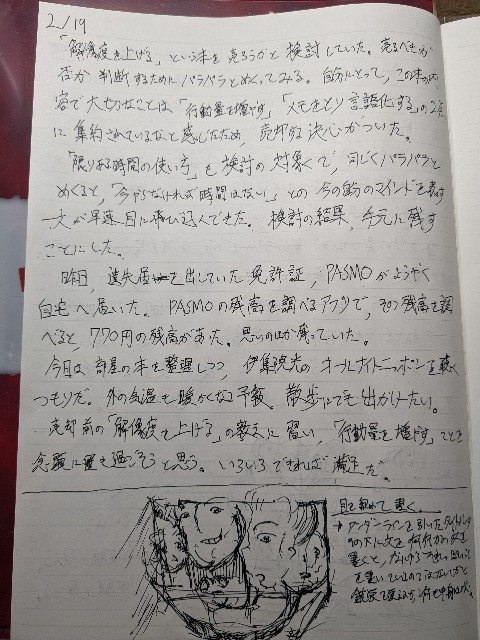 2/19
「解像度を上げる」という本を売ろうかと検討していた。売るべきか
否か判断するためにパラパラとめくってみる。自分にとって、この本の内
容で大切なことは「行動量を増やす」「メモをとり言語化する」の2点
に集約されているなと感じたため、売却する決心がついた。
「限りある時間の使い方」も検討の対象で、同じくパラパラと
めくると、「今やらなければ時間はない」との今の自分のマインドを表す
一文が早速目に飛び込んできた。検討の結果、手元に残す
ことにした。
昨日、遺失届を出していた免許証、PASMOがようやく
自宅へ届いた。PASMOの残高を調べるアプリで、その残高を調
べると、770円の残高があった。思いのほか残っていた。
今日は、部屋の本を整理しつつ、伊集院光のオールナイトニッポンを聴く
つもりだ。外の気温も暖かくなる予報。散歩にでも出かけたい。
売却前の「解像度を上げる」の教えに習い、「行動量を増やす」ことを
念頭に置き過ごそうと思う。いろいろできれば満足だ。
目を細めて書く
→アンダーラインを引いた
の下に文を何行か
書くと、
を書いて